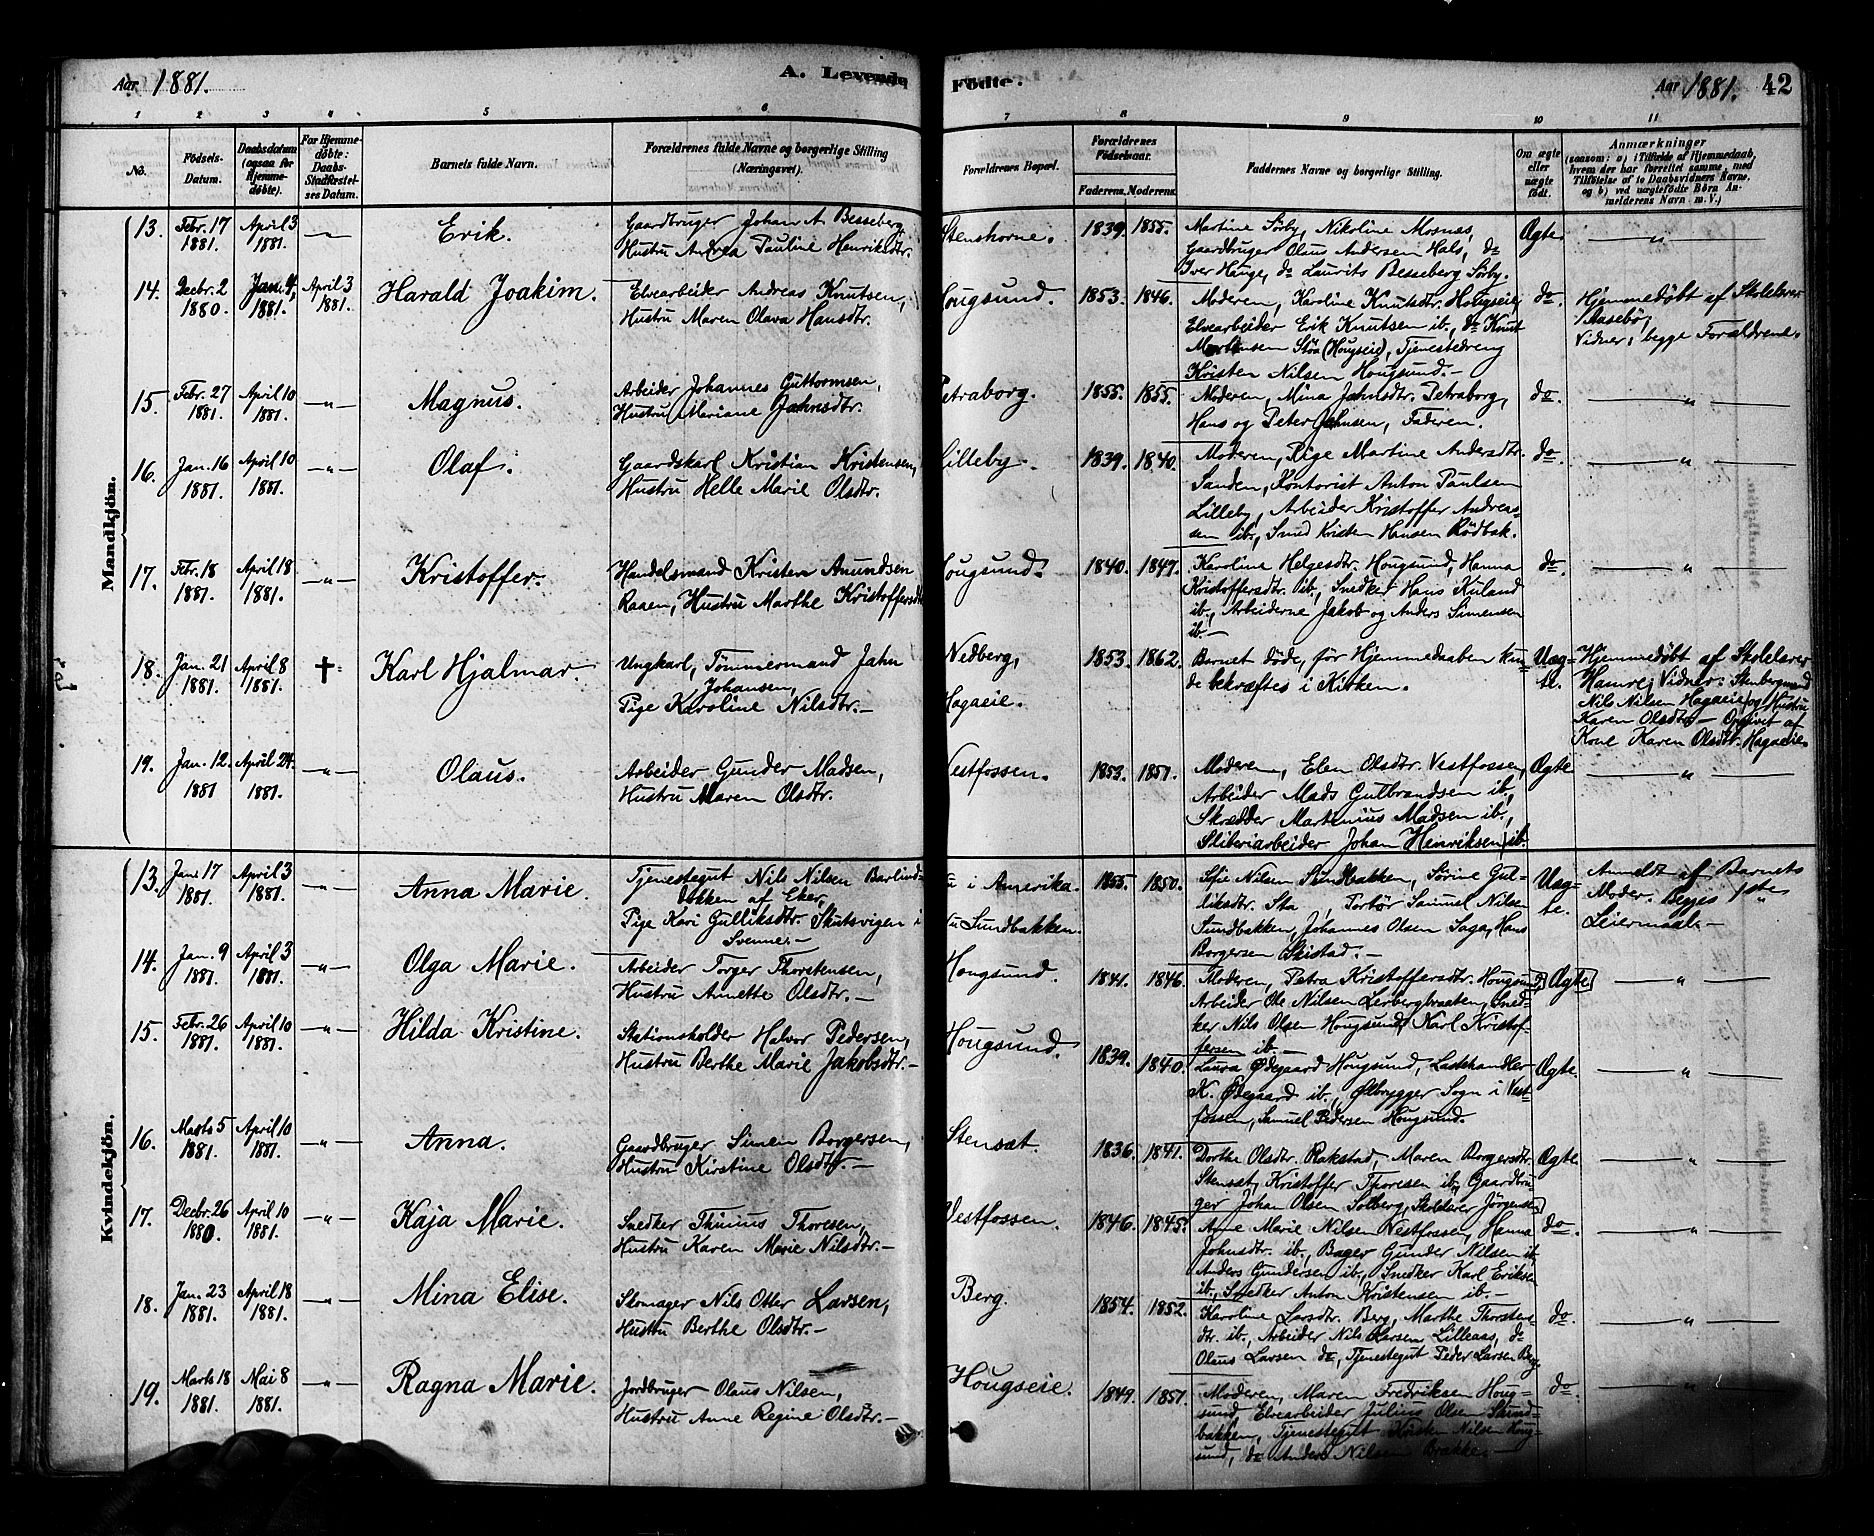 Aar 1881.
A. Levende Födte.
Aar 1881. 42
1 2 3 4 5 6 7 8 9 10 11
No.
Födsels-Datum.
Daabsdatum (ogsaa for Hjemmedöbte).
For Hjemmedöbte: Daabs-Stadfæstelses Datum.
Barnets fulde Navn.
Forældrenes fulde Navne og borgerlige Stilling (Næringsvei).
Forældrenes Bopæl.
Forældrenes Fødselsaar.
Faderens. Moderens.
Faddernes Navne og borgerlige Stilling.
Om ægte eller uægte födt.
Anmærkninger
(saasom: a) i Tilfælde af Hjemmedaab, hvem der har forrettet samme, med Tilföielse af to Daabsvidners Navne, og b) ved uægtefödte Børn Anmelderens Navn m. V.)
Mandkjön.
13. Febr. 17 1881. April 3 1881. — Erik.
Gaardbruger Johan A. Besseberg,
Hustru Andrea Pauline Henriksdtr.
Stenshorne. 1839. 1855.
Martine Sörby, Nikoline Mosnas,
Gaardbruger Olaus Andersen Hals, do
Iver Hauge, do Laurits Besseberg Sörby.
Ægte — „ —
14. Decbr. 2 1880. Jan. 4, 1881. April 3 1881. Harald Joakim.
Elvearbeider Andreas Knutsen,
Hustru Maren Olava Hansdtr.
Hougsund. 1853. 1846.
Moderen, Karoline Knutsdtr. Hougseie,
Elvearbeider Erik Knutsen ib., do Knut
Mortensen Stöa (Hougseie), Tjenestedreng
Kristen Nilsen Hougsund. —
do.
Hjemmedöbt af Skolelærer
Aasebö,
Vidner: begge Forældrene.
15. Febr. 27 1881. April 10 1881. — „ — Magnus.
Arbeider Johannes Guttormsen,
Hustru Mariane Jahnsdtr.
Petraborg. 1855. 1855.
Moderen, Mina Jahnsdtr. Petraborg,
Hans og Peter Jahnsen, Faderen.
do. — „ —
16. Jan. 16 1881. April 10 1881. — „ — Olaf.
Gaardskarl Kristian Kristensen,
Hustru Helle Marie Olsdtr.
Lilleby. 1839. 1840.
Moderen, Pige Martine Andersdtr.
Sanden, Kontorist Anton Paulsen
Lilleby, Arbeider Kristoffer Andreas-
sen ib., Smed Kristen Hansen Rödbak.
do. — „ —
17. Febr. 18 1881. April 18 1881. — „ — Kristoffer.
Handelsmand Kristen Amundsen
Raaen, Hustru Marthe Kristoffersdtr
Hougsund. 1840. 1847.
Karoline Helgesdtr. Hougsund, Hanna
Kristoffersdtr. ib., Snedker Hans Kuland
ib., Arbeiderne Jakob og Anders Simensen
ib. —
do. — „ —
18. Jan. 21 1881. April 8 1881. † Karl Hjalmar.
Ungkarl, Tömmermand Jahn
Johansen,
Pige Karoline Nilsdtr. —
Nedberg,
Hagaeie.
1853. 1862.
Barnet döde, för Hjemmedaaben kun-
de bekræftes i Kirken.
Uæg-
te.
Hjemmedöbt af Skolelærer
Hamre, Vidner: Stenbergmand
Nils Nilsen Hagaeie og Hustru
Karen Olsdtr. — Opgivet af
Kone Karen Olsdtr. Hagaeie.
19. Jan. 12. 1881 April 24. 1881. — „ — Olaus.
Arbeider Gunder Madsen,
Hustru Maren Olsdtr.
Vestfossen. 1853. 1851.
Moderen, Elen Olsdtr. Vestfossen,
Arbeider Mads Gulbrandsen ib.,
Skrædder Martinius Madsen ib.,
Sliberiarbeider Johan Henriksen ib.
Ægte — „ —
Kvindekjön.
13. Jan. 17 1881. April 3 1881. — „ — Anna Marie.
Tjenestegut Nils Nilsen Barlind-
bakken af Eker,
Pige Kari Gulliksdtr. Skutsvigen i
Svenne. —
nu i Amerika.
nu Sundbakken.
1855. 1850.
Sofie Nilsen Sundbakken, Sörine Gul-
liksdtr. Sta, Torbör Samuel Nilsen
Sundbakken, Johannes Olsen Saga, Hans
Borgersen Skistad. —
Uæg-
te.
Anmeldt af Barnets
Moder. Begges 1ste
Leiermaal. —
14. Jan. 9 1881. April 3 1881. — „ — Olga Marie.
Arbeider Torger Thorstensen,
Hustru Annette Olsdtr. —
Hougsund. 1841. 1846.
Moderen, Petra Kristoffersdtr. Hougsund,
Arbeider Ole Nilsen Lerbergbraaten, Sned-
ker Nils Olsen Hougsund, Karl Kristof-
fersen ib. —
Ægte — „ —
15. Febr. 26 1881. April 10 1881. — „ — Hilda Kristine.
Stationsholder Halvor Pedersen,
Hustru Berthe Marie Jakobsdtr. —
Hougsund. 1839. 1840.
Laura Ødegaard Hougsund, Lasthandler
K. Ødegaard ib., Ølbrygger Sogn i Vest-
fossen, Samuel Pedersen Hougsund.
Ægte. — „ —
16. Marts 5 1881. April 10 1881. — „ — Anna.
Gaardbruger Simen Borgersen,
Hustru Kirstine Olsdtr. —
Stensæt. 1836. 1841.
Dorthe Olsdtr. Rakstad, Maren Borgersdtr.
Stensæt, Kristoffer Thoresen ib., Gaardbru-
ger Johan Olsen Solberg, Skolelærer Jörgensen
Ægte — „ —
17. Decbr. 26 1880. April 10 1881. — „ — Kaja Marie.
Snedker Thinius Thoresen,
Hustru Karen Marie Nilsdtr. —
Vestfossen. 1846. 1845.
Anne Marie Nilsen Vestfossen, Hanna
Johnsdtr. ib., Bager Gunder Nilsen ib.,
Anders Gundersen ib., Snedker Karl Eriksen
ib., Snedker Anton Kristensen ib. —
do. — „ —
18. Jan. 23 1881. April 18 1881. — „ — Mina Elise.
Skomager Nils Otter Larsen,
Hustru Berthe Olsdtr. —
Berg. 1854. 1852.
Karoline Larsdtr. Berg, Marthe Thorstens-
dtr. ib., Arbeider Nils Larsen Lilleaas, do
Olaus Larsen do, Tjenestegut Peder Larsen Berg.
do. — „ —
19. Marts 18 1881. Mai 8 1881. — „ — Ragna Marie.
Jordbruger Olaus Nilsen,
Hustru Anne Regine Olsdtr. —
Hougseie. 1849. 1851.
Moderen, Maren Fredriksen Houg-
sund, Elvearbeider Julius Olsen Sund-
bakken, Tjenestegut Kristen Nilsen Houg-
sund, do Anders Nilsen Brække. —
do. — „ —